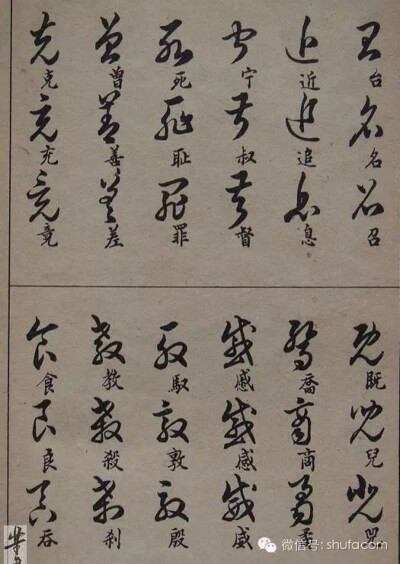 台 名 召
近 追 息
宁 叔 督
死 耻 罪
曾 善 差
克 充 竟
既 兒
喬 商
感 威
馭 敦 殷
教 殺 刹
食 良 吞
微信号: shufacom